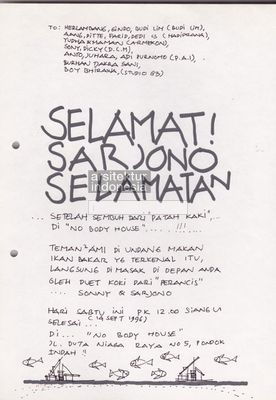 TO: HERLAMBANG, GINDO, BUDI LIM (BUDI LIM),
AANG, PITTE, FARID, DEDI IS (HADIPRANA),
YUDHA KHAMAN (ARMEKON),
SONY, DICKY (D.C.M),
ANTO, JUHARA, ADI PURNOMO (P.A.I),
BURHAN TJAKRA SANI,
BOY BHIRAWA, (STUDIO GB)
SELAMAT!
SARJONO
arsitektur
indonesia
SELAMATAN
... SETELAH SEMBUH DARI "PATAH KAKI",..
DI "NO BODY HOUSE".... !!! ....
TEMAN² AMI DI UNDANG MAKAN
IKAN BAKAR YG TERKENAL ITU,
LANGSUNG DI MASAK DI DEPAN ANDA
OLEH DUET KOKI DARI "PERANCIS"
.... SONNY & SARJONO
HARI SABTU INI PK 12.00 SIANG LI
SELESAI ... (14 SEPT 1996)
DI... "NO BODY HOUSE"
JL. DUTA NIAGA RAYA NO 5, PONDOK
INDAH !!